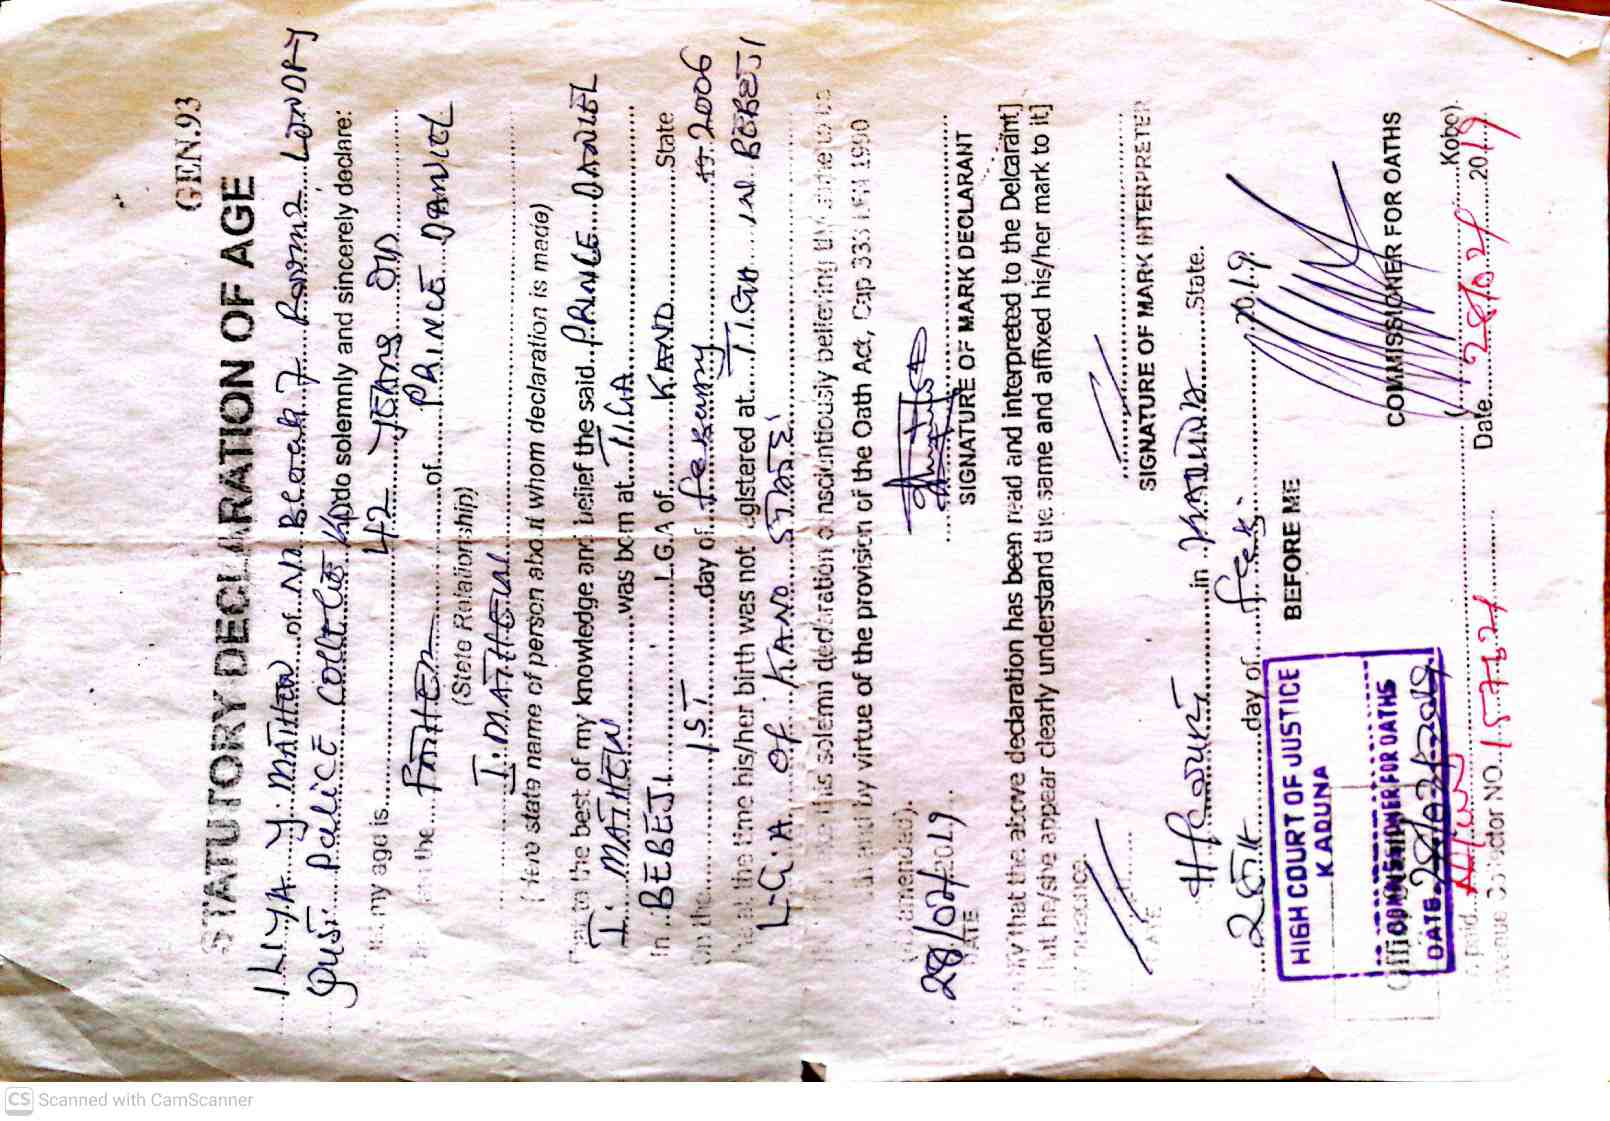 GEN.93
STATUTORY DECLARATION OF AGE
ILIYA Y. MATHEW of No. Block 7 Room 2
Police College do solemnly and sincerely declare:
my age is 42 years old
the FATHER of PRINCE DANIEL
(State Relationship)
I. MATHEW
(Here state name of person about whom declaration is made)
to the best of my knowledge and belief the said PRINCE DANIEL
I. MATHEW was born at
In BEBEJI L.G.A of KANO State
on the 1ST day of February 2006
at the time his/her birth was not registered at TIGA IN BEBEJI
L.G.A OF KANO STATE
this solemn declaration conscientiously believing
and by virtue of the provision of the Oath Act, Cap 333 LFN 1990
28/02/2019
DATE
SIGNATURE OF MARK DECLARANT
that the above declaration has been read and interpreted to the Delcarant]
he/she appear clearly understand the same and affixed his/her mark to it]
DATE
SIGNATURE OF MARK INTERPRETER
H/Court in KADUNA State.
28th day of Feb. 2019
BEFORE ME
HIGH COURT OF JUSTICE
KADUNA
COMMISSIONER FOR OATHS
DATE 28/02/2019
COMMISSIONER FOR OATHS
( Kobo)
Date 28/02/ 2019
CS Scanned with CamScanner